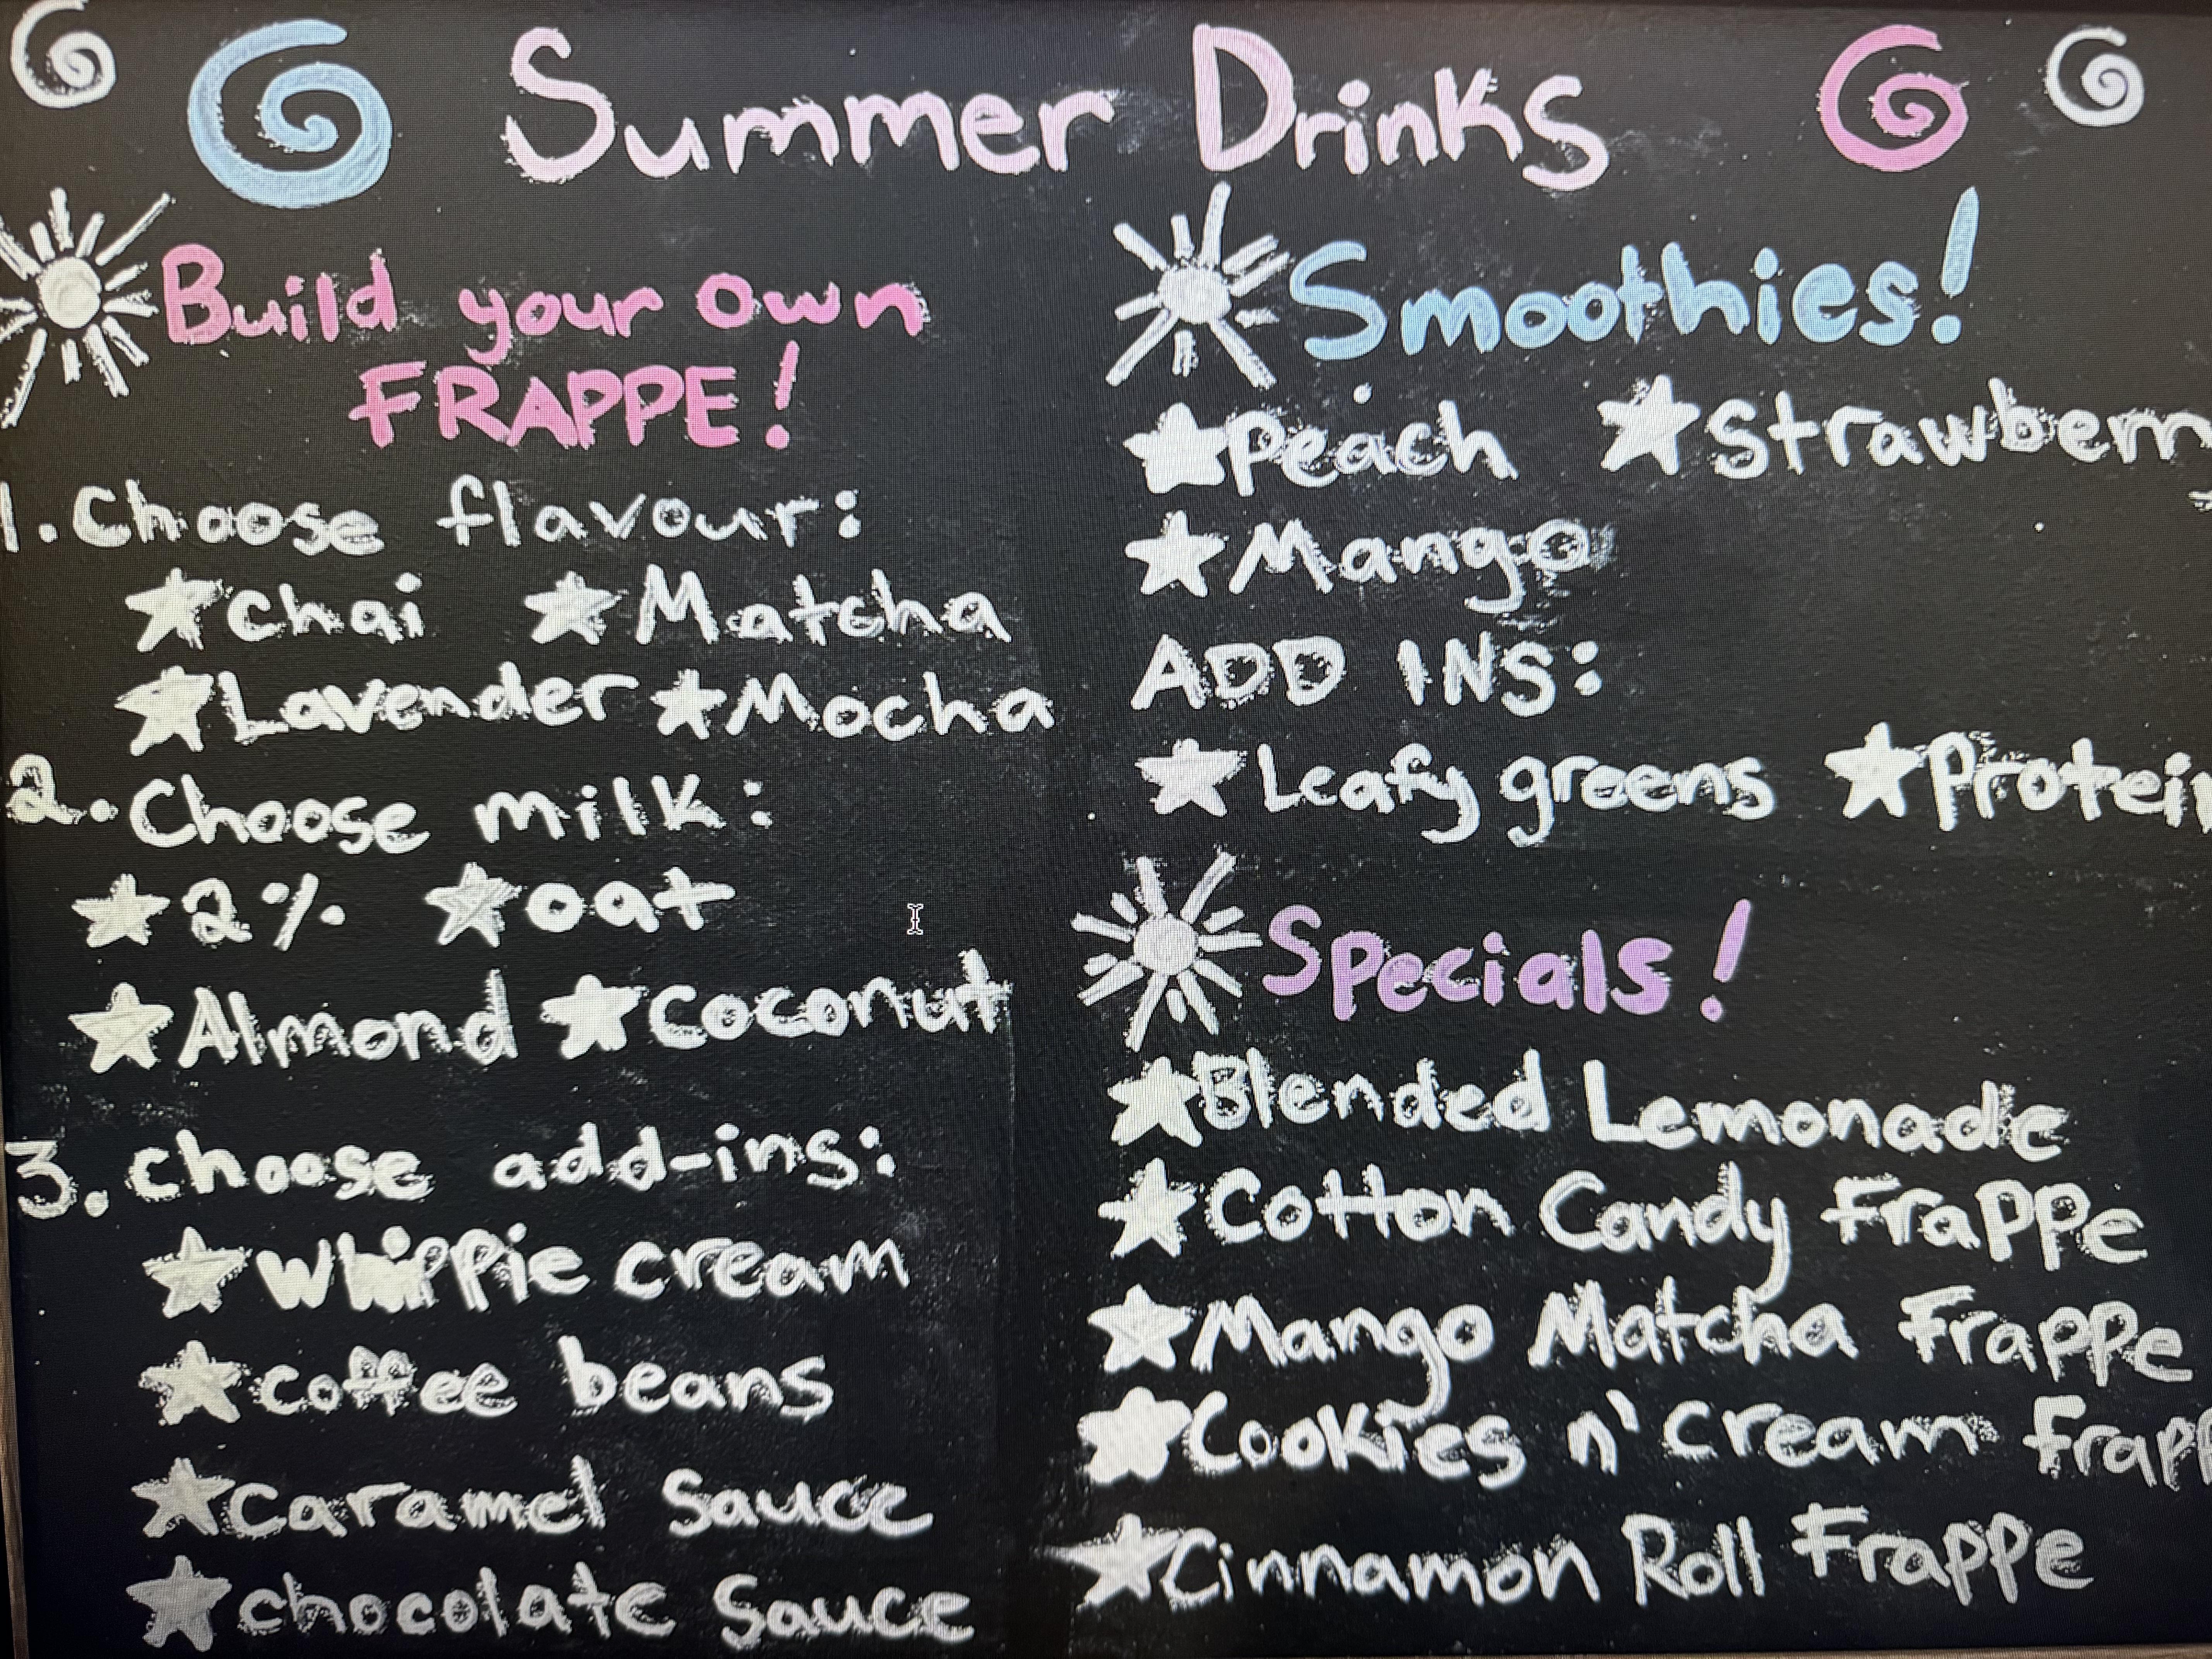 Summer Drinks
Build your own
FRAPPE!
1. Choose flavour:
chai Matcha
Lavender Mocha
2. Choose milk:
2% oat
Almond Coconut
3. choose add-ins:
whippie cream
coffee beans
caramel sauce
chocolate sauce
Smoothies!
Peach Strawberry
Mango
ADD INS:
Leafy greens Protein
Specials!
Blended Lemonade
Cotton Candy Frappe
Mango Matcha Frappe
Cookies n' cream frapp
Cinnamon Roll Frappe